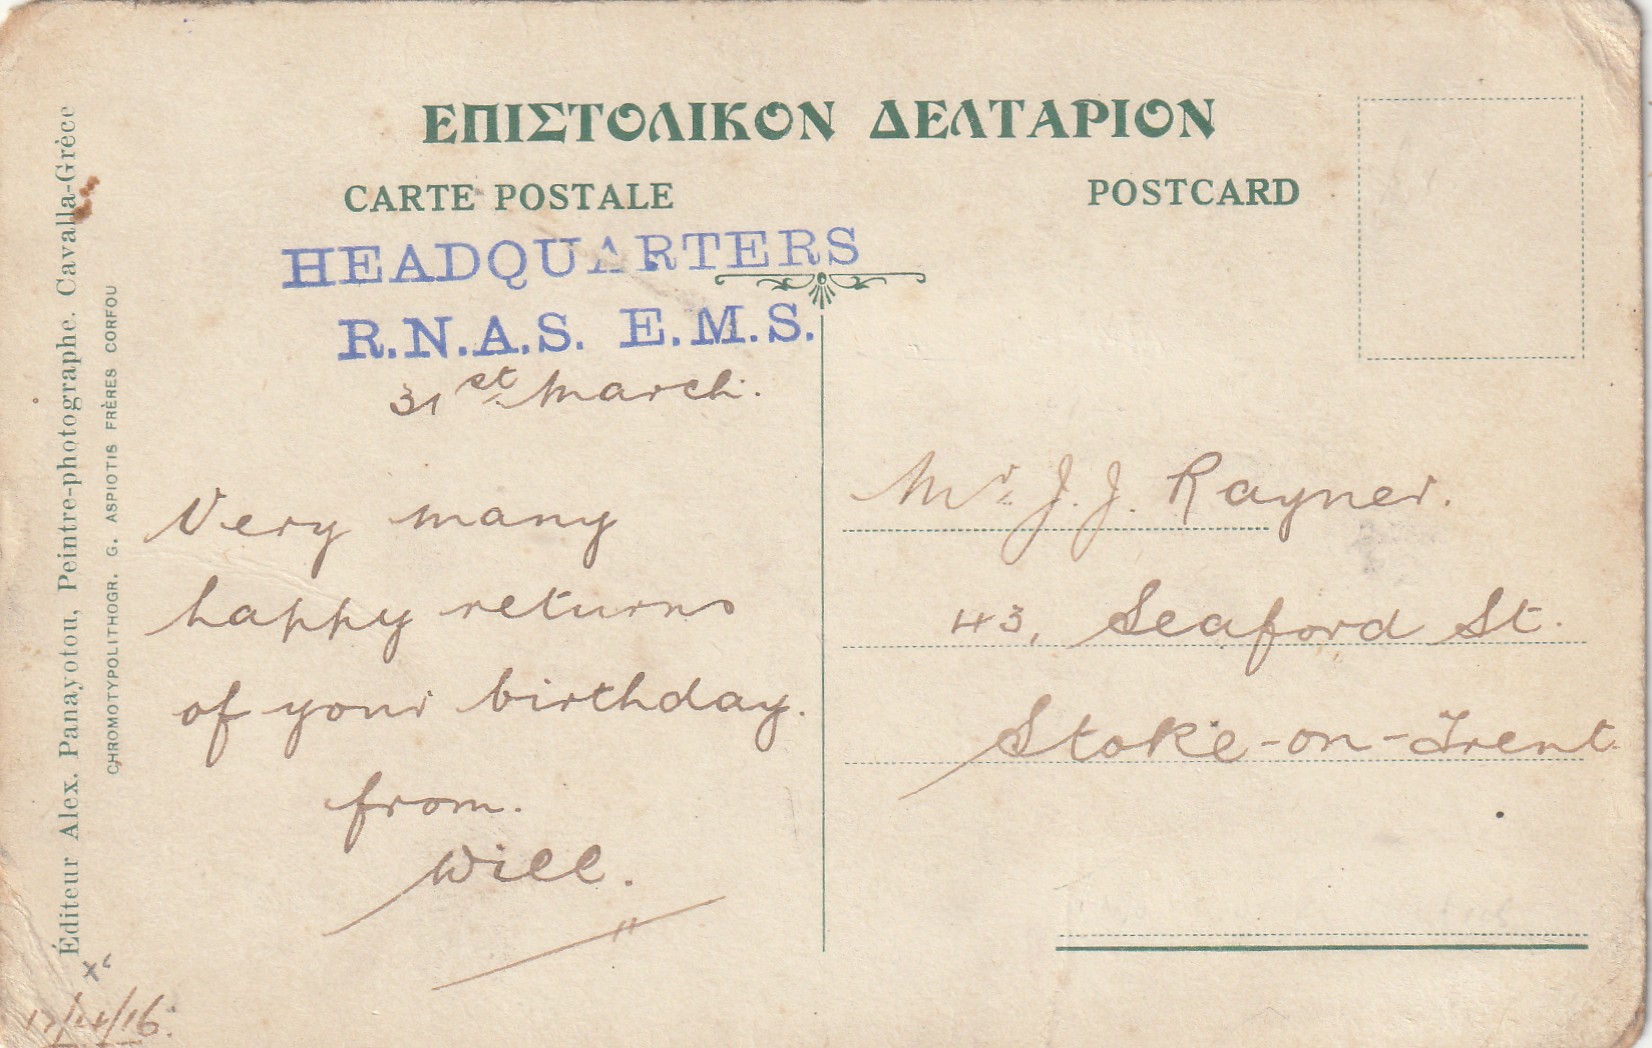 ΕΠΙΣΤΟΛΙΚΟΝ ΔΕΛΤΑΡΙΟΝ
CARTE POSTALE
POSTCARD
HEADQUARTERS
R.N.A.S. E.M.S.
31st March.
Very many
happy returns
of your birthday.
from.
Will.
Mr. J. J. Rayner.
43, Seaford St.
Stoke-on-Trent
Éditeur Alex. Panayotou, Peintre-photographe. Cavalla-Grèce
CHROMOTYPOLITHOGR. G. ASPIOTIS FRÈRES CORFOU